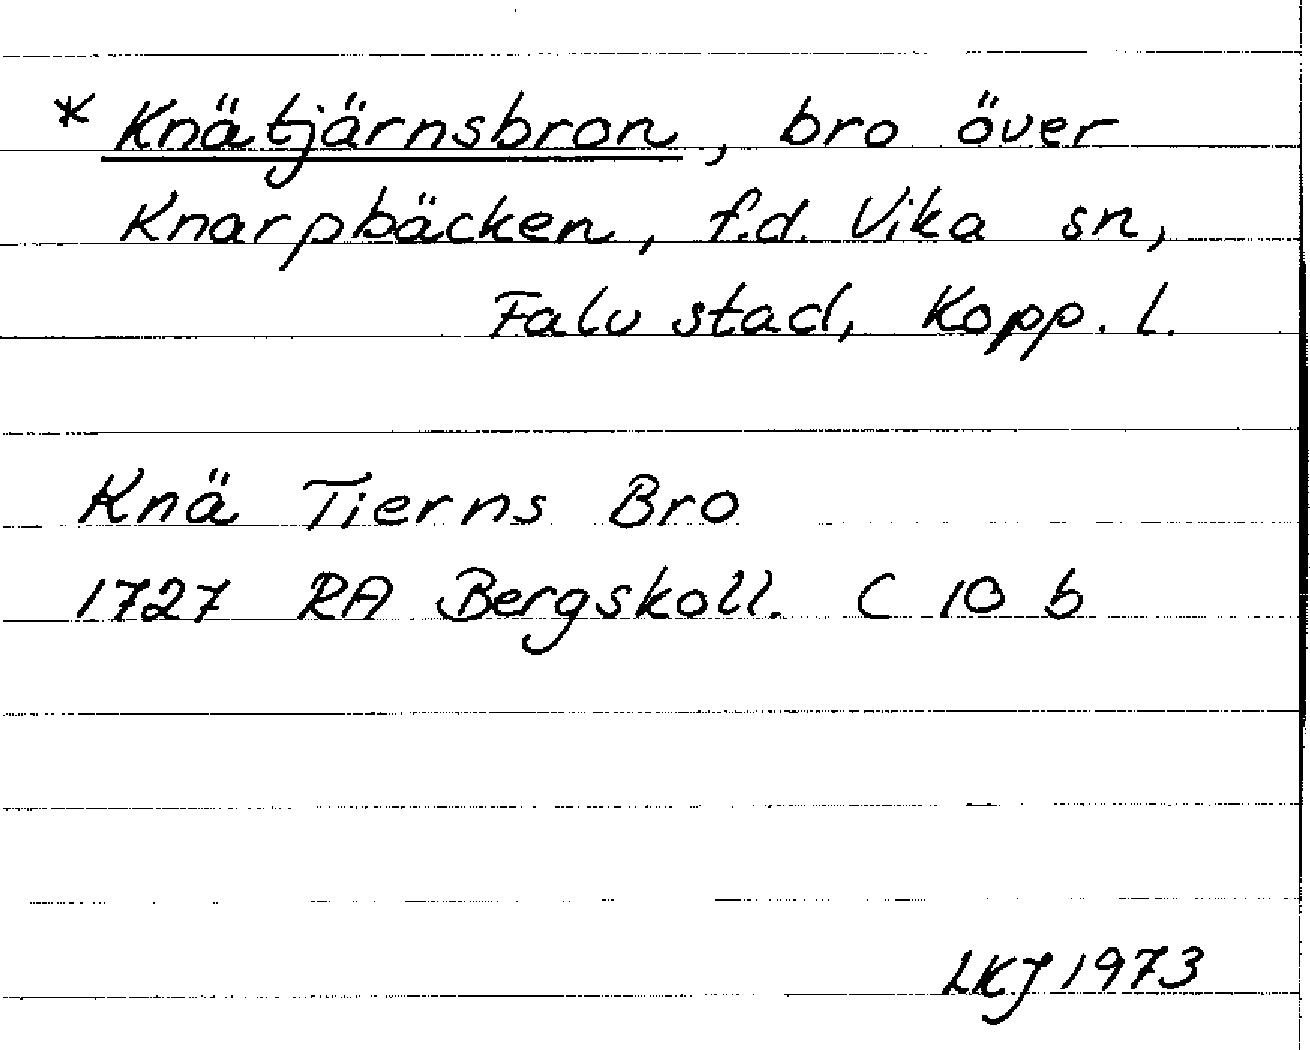 * Knätjärnsbron, bro över
Knarpbäcken, f.d. Vika sn,
Falu stad, Kopp. l.
Knä Tierns Bro
1727 RA Bergskoll. C 10 b
LKJ 1973